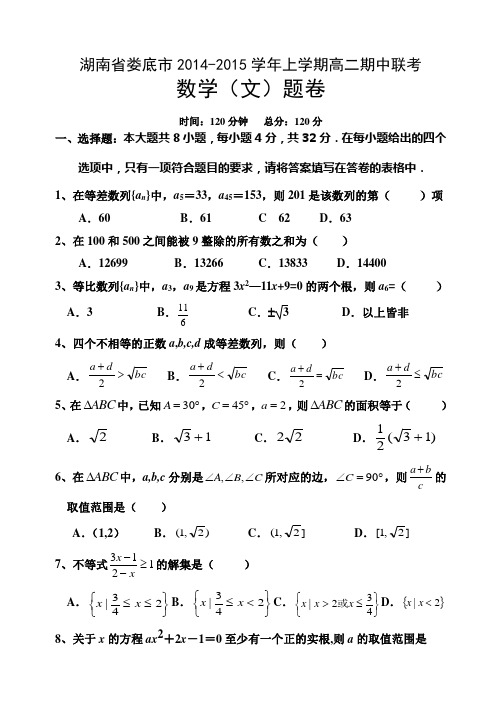 湖南省娄底市2014-2015学年上学期高二期中联考
数学（文）题卷
时间：120分钟 总分：120分
一、选择题：本大题共8小题，每小题4分，共32分．在每小题给出的四个
选项中，只有一项符合题目的要求，请将答案填写在答卷的表格中．
1、在等差数列{aₙ}中，a₅＝33，a₄₅＝153，则201是该数列的第（ ）项
A．60 B．61 C 62 D．63
2、在100和500之间能被9整除的所有数之和为（ ）
A．12699 B．13266 C．13833 D．14400
3、等比数列{aₙ}中，a₃，a₉是方程3x²—11x+9=0的两个根，则a₆=（ ）
A．3 B．11/6 C．±√3 D．以上皆非
4、四个不相等的正数a,b,c,d成等差数列，则（ ）
A．(a+d)/2 > √bc B．(a+d)/2 < √bc C．(a+d)/2 = √bc D．(a+d)/2 ≤ √bc
5、在ΔABC中，已知A=30°，C=45°，a=2，则ΔABC的面积等于（ ）
A．√2 B．√3+1 C．2√2 D．1/2(√3+1)
6、在ΔABC中，a,b,c分别是∠A,∠B,∠C所对应的边，∠C=90°，则(a+b)/c的
取值范围是（ ）
A．（1,2） B．(1,√2) C．(1,√2] D．[1,√2]
7、不等式(3x-1)/(2-x)≥1的解集是（ ）
A．{x|3/4≤x≤2} B．{x|3/4≤x<2} C．{x|x>2或x≤3/4} D．{x|x<2}
8、关于x的方程ax²＋2x－1＝0至少有一个正的实根,则a的取值范围是